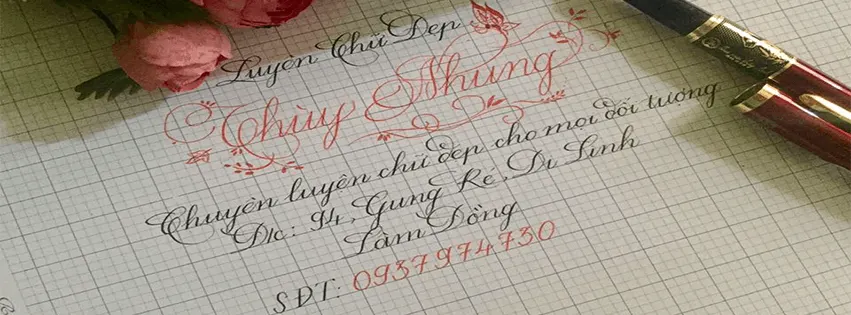 Luyện Chữ Đẹp
Thùy Nhung
Chuyên luyện chữ đẹp cho mọi đối tượng
Đ/c: 94, Gung Ré, Di Linh
Lâm Đồng
SĐT: 0937974730